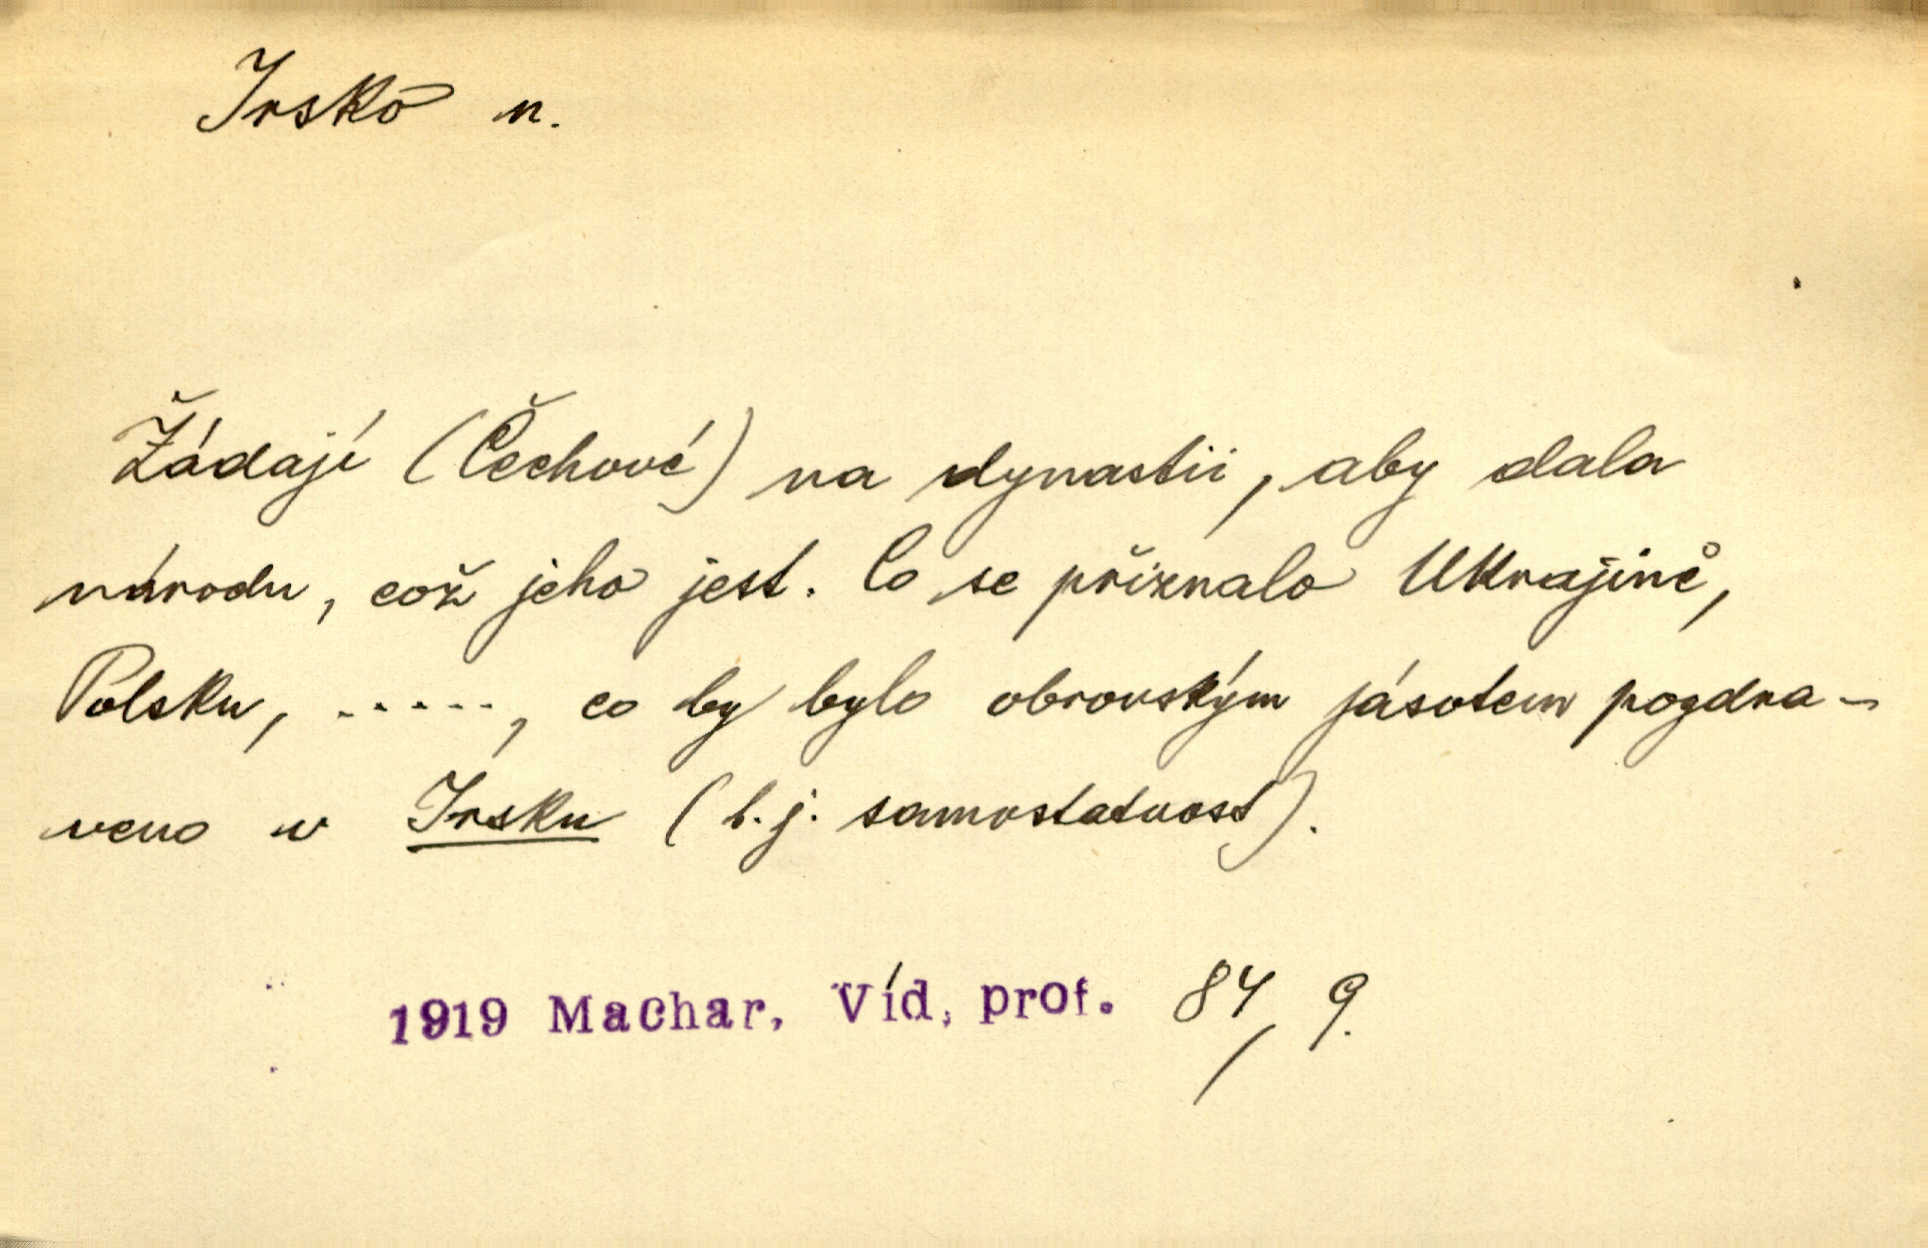 Irsko n.
Žádají (Čechové) na dynastii, aby dala
národu, což jeho jest. Co se přiznalo Ukrajině,
Polsku, ....., co by bylo obrovským jásotem pozdra-
veno v Irsku (t.j. samostatnost).
1919 Machar, Víd, prof. 84, 9.